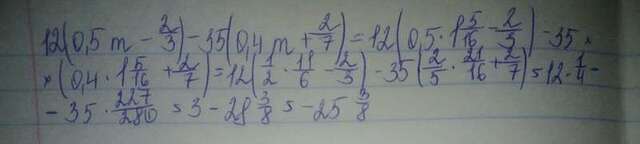 12(0,5 m - 2/3) - 35(0,4 m + 2/7) = 12(0,5 · 1 5/16 - 2/3) - 35 ×
× (0,4 · 1 5/16 + 2/7) = 12(1/2 · 11/6 - 2/3) - 35(2/5 · 21/16 + 2/7) = 12 · 1/4 -
- 35 · 227/280 = 3 - 28 3/8 = -25 3/8